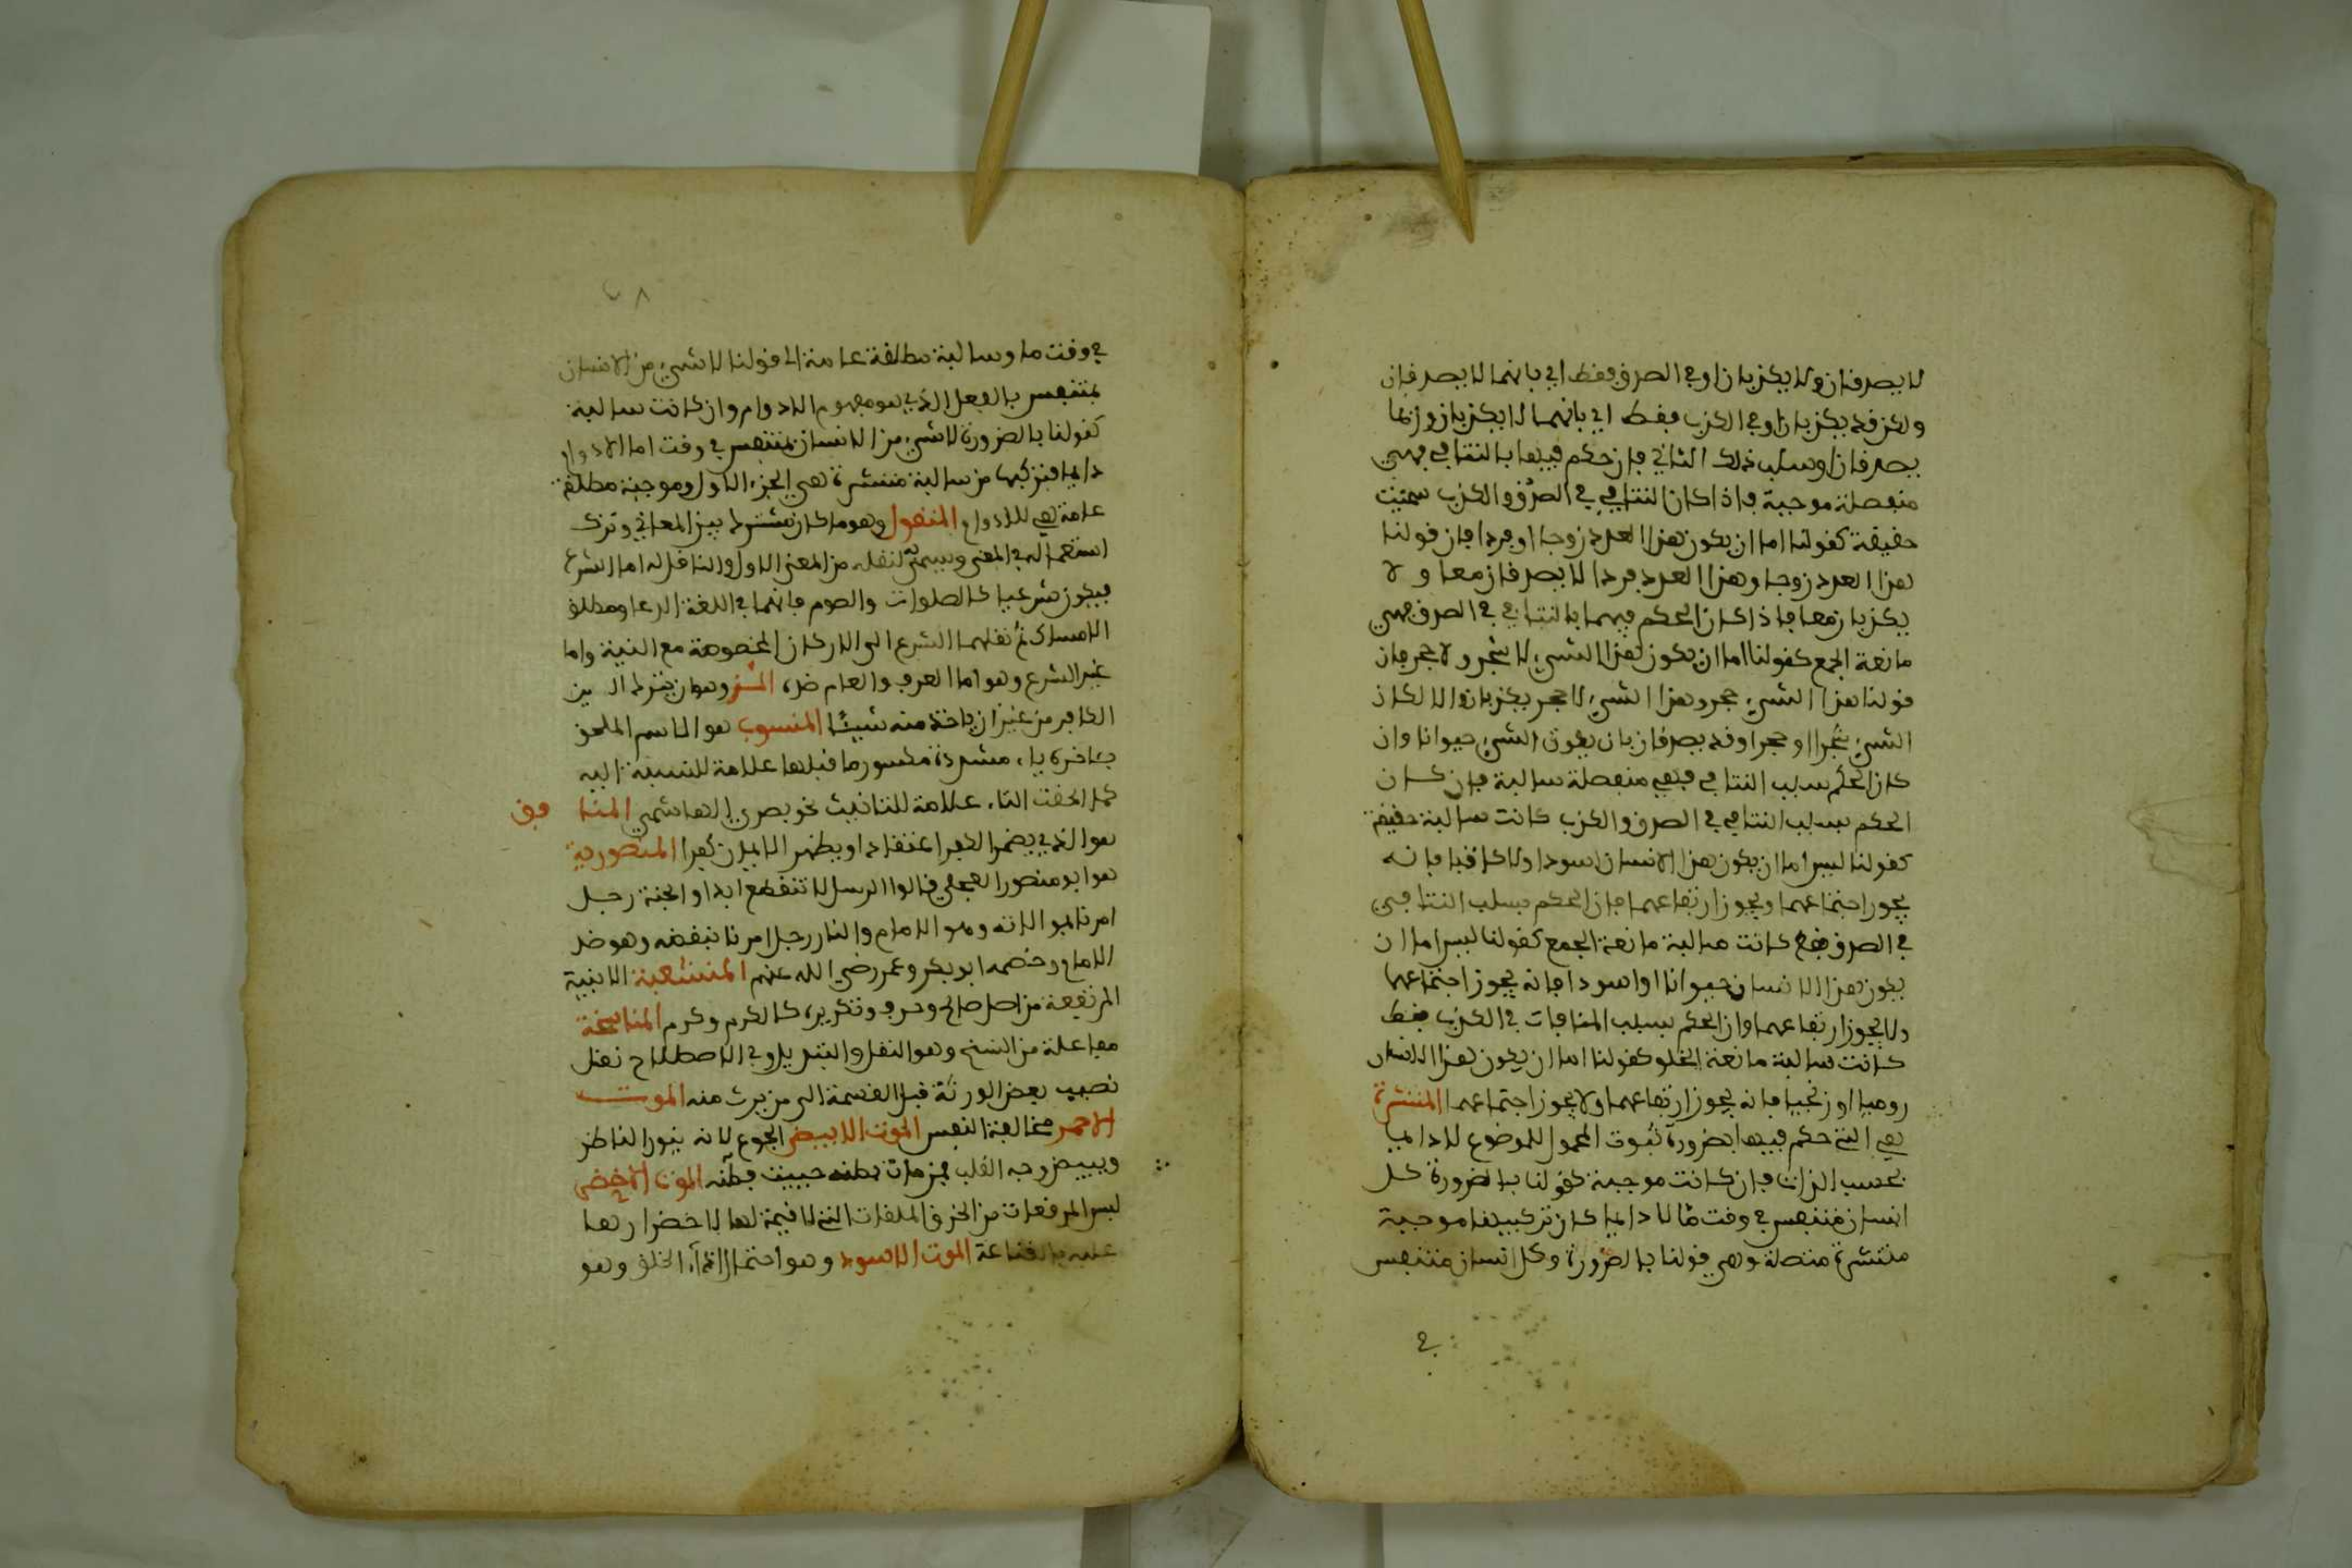 لا يصدقان ولا يكذبان او في الصدق فقط اي بانهما لا يصدقان
ولكن قد يكذبان او في الكذب فقط اي بانهما لا يكذبان وربما
يصدقان او سلب ذلك التنافي فان حكم فيها بالتنافي فهي
منفصلة موجبة فاذا كان التنافي في الصدق والكذب سميت
حقيقة كقولنا اما ان يكون هذا العدد زوجا او فردا فان قولنا
هذا العدد زوجا وهذا العدد فردا لا يصدقان معا ولا
يكذبان معا فاذا كان الحكم فيهما بالتنافي في الصدق فهي
مانعة الجمع كقولنا اما ان يكون هذا الشيء لا شجر ولا حجر فان
قولنا هذا الشيء حجر وهذا الشيء لا حجر يكذبان والا لكان
الشيء شجرا او حجرا وقد يصدقان بان يكون الشيء حيوانا وان
كان الحكم بسلب التنافي فهي منفصلة سالبة فان كان
الحكم بسلب التنافي في الصدق والكذب كانت سالبة حقيقة
كقولنا ليس اما ان يكون هذا الانسان اسودا ولا كاتبا فانه
يجوز اجتماعهما ويجوز ارتفاعهما فان الحكم بسلب التنافي
في الصدق فقط كانت سالبة مانعة الجمع كقولنا ليس اما ان
يكون هذا الانسان حيوانا او اسودا فانه يجوز اجتماعهما
ولا يجوز ارتفاعهما وان الحكم بسلب المنافات في الكذب فقط
كانت سالبة مانعة الخلو كقولنا اما ان يكون هذا الانسان
روميا او زنجيا فانه يجوز ارتفاعهما ولا يجوز اجتماعهما المنتشرة
هي التي حكم فيها بضرورة ثبوت المحمول للموضوع لا دايما
بحسب الذات فان كانت موجبة كقولنا بالضرورة كل
انسان متنفس في وقت ما لا دايما كان تركيبها موجبة
منتشرة متصلة وهي قولنا بالضرورة وكل انسان متنفس
في
في وقت ما وسالبة مطلقة عامة اي قولنا لا شيء من الانسان
بمتنفس بالفعل الذي هو مفهوم الادوام وان كانت سالبة
كقولنا بالضرورة لا شيء من الانسان بمتنفس في وقت اما لا
دايما فتركيبها من سالبة منتشرة هي الجزء الاول وموجبة مطلقة
عامة هي للادوام المنقول وهو ما كان مشتركا بين المعاني وترك
استعماله في المعنى ويسمى به لنقله من المعنى الاول والناقل له اما الشرع
فيكون شرعيا كالصلوات والصوم فانهما في اللغة الدعا ومطلق
الامساك ثم نقلهما الشرع الى الاركان المخصوصة مع النية واما
غير الشرع وهو اما العرف والعام ضد وهو ان يترك
الكافر من غير ان ياخذ منه شيئا المنسوب هو الاسم الملحق
بآخره ياء مشددة مكسور ما قبلها علامة للنسبة اليه
كما الحقت التاء علامة للتانيث نحو بصري الهاشمي المنافق
هو الذي يضمر الكفر اعتقادا ويظهر الايمان المنصورية
هو ابو منصور العجلي قالوا الرسل لا تنقطع ابدا والجنة رجل
امرنا بموالاته وهو الامام والنار رجل امرنا ببغضه وهو ضد
الامام وخصمه ابو بكر وعمر رضي الله عنهم المنشعبة الابنية
المرتفعة من اصل والحاق حرف وتكريره كالكرم وكرم المناسخة
مفاعلة من النسخ وهو النقل والتبديل وفي الاصطلاح نقل
نصيب بعض الورثة قبل القسمة الى من يرث منه الموت
الاحمر مخالفة النفس الموت الابيض الجوع لانه ينور الباطن
ويبيض وجه القلب فمن ماتت بطنه حييت فطنه الموت الاخضر
لبس المرقعات من الخرق الملقات التي لا قيمة لها لاخضرارها
عليه بالقناعة الموت الاسود وهو احتمال اذاء الخلق وهو